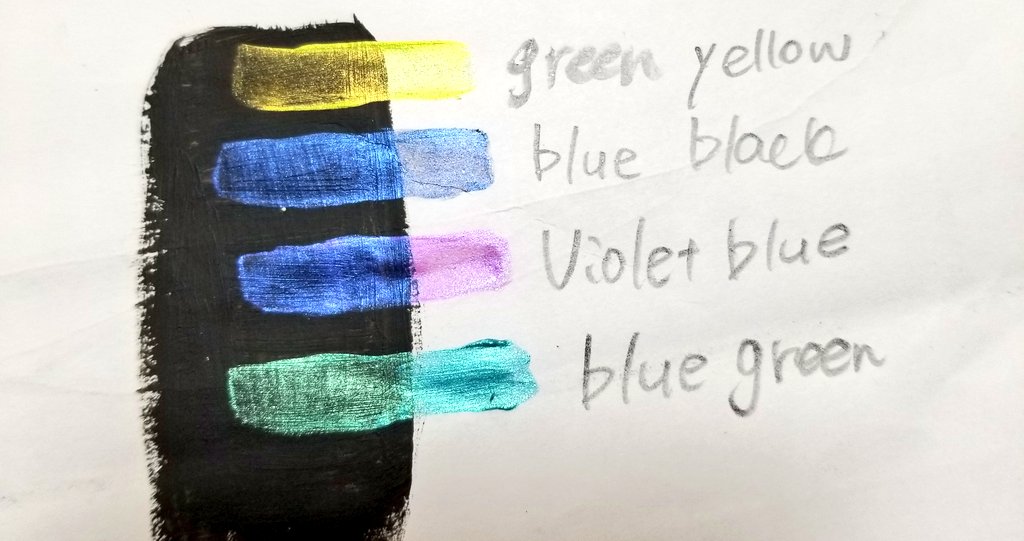 green yellow
blue black
Violet blue
blue green